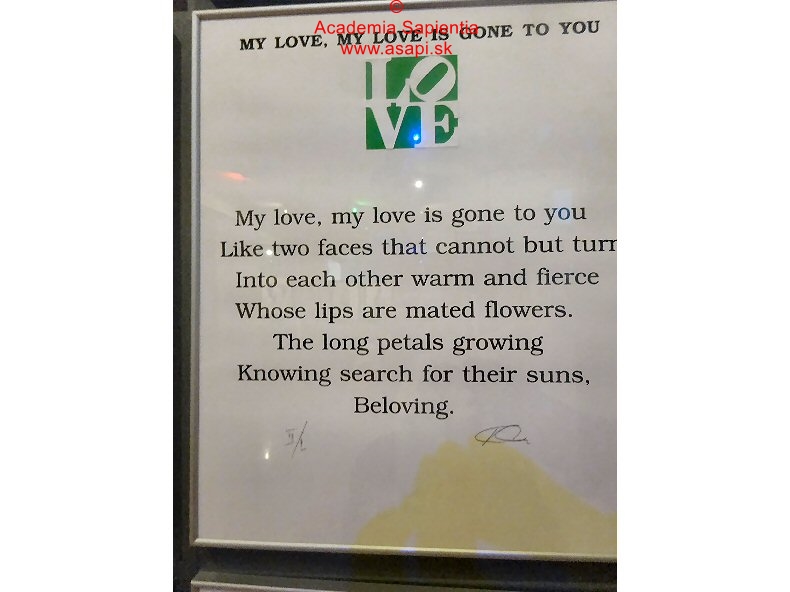 ©
Academia Sapientia
www.asapi.sk
MY LOVE, MY LOVE IS GONE TO YOU
LOVE
My love, my love is gone to you
Like two faces that cannot but turn
Into each other warm and fierce
Whose lips are mated flowers.
The long petals growing
Knowing search for their suns,
Beloving.
II/